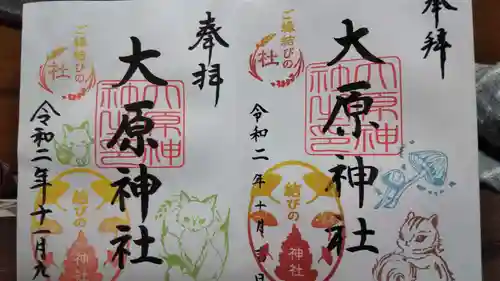 奉拝
大原神社
ご縁結びの
社
結びの
神社
令和二年十一月九
奉拝
大原神社
ご縁結びの
社
結びの
神社
令和二年十月
日